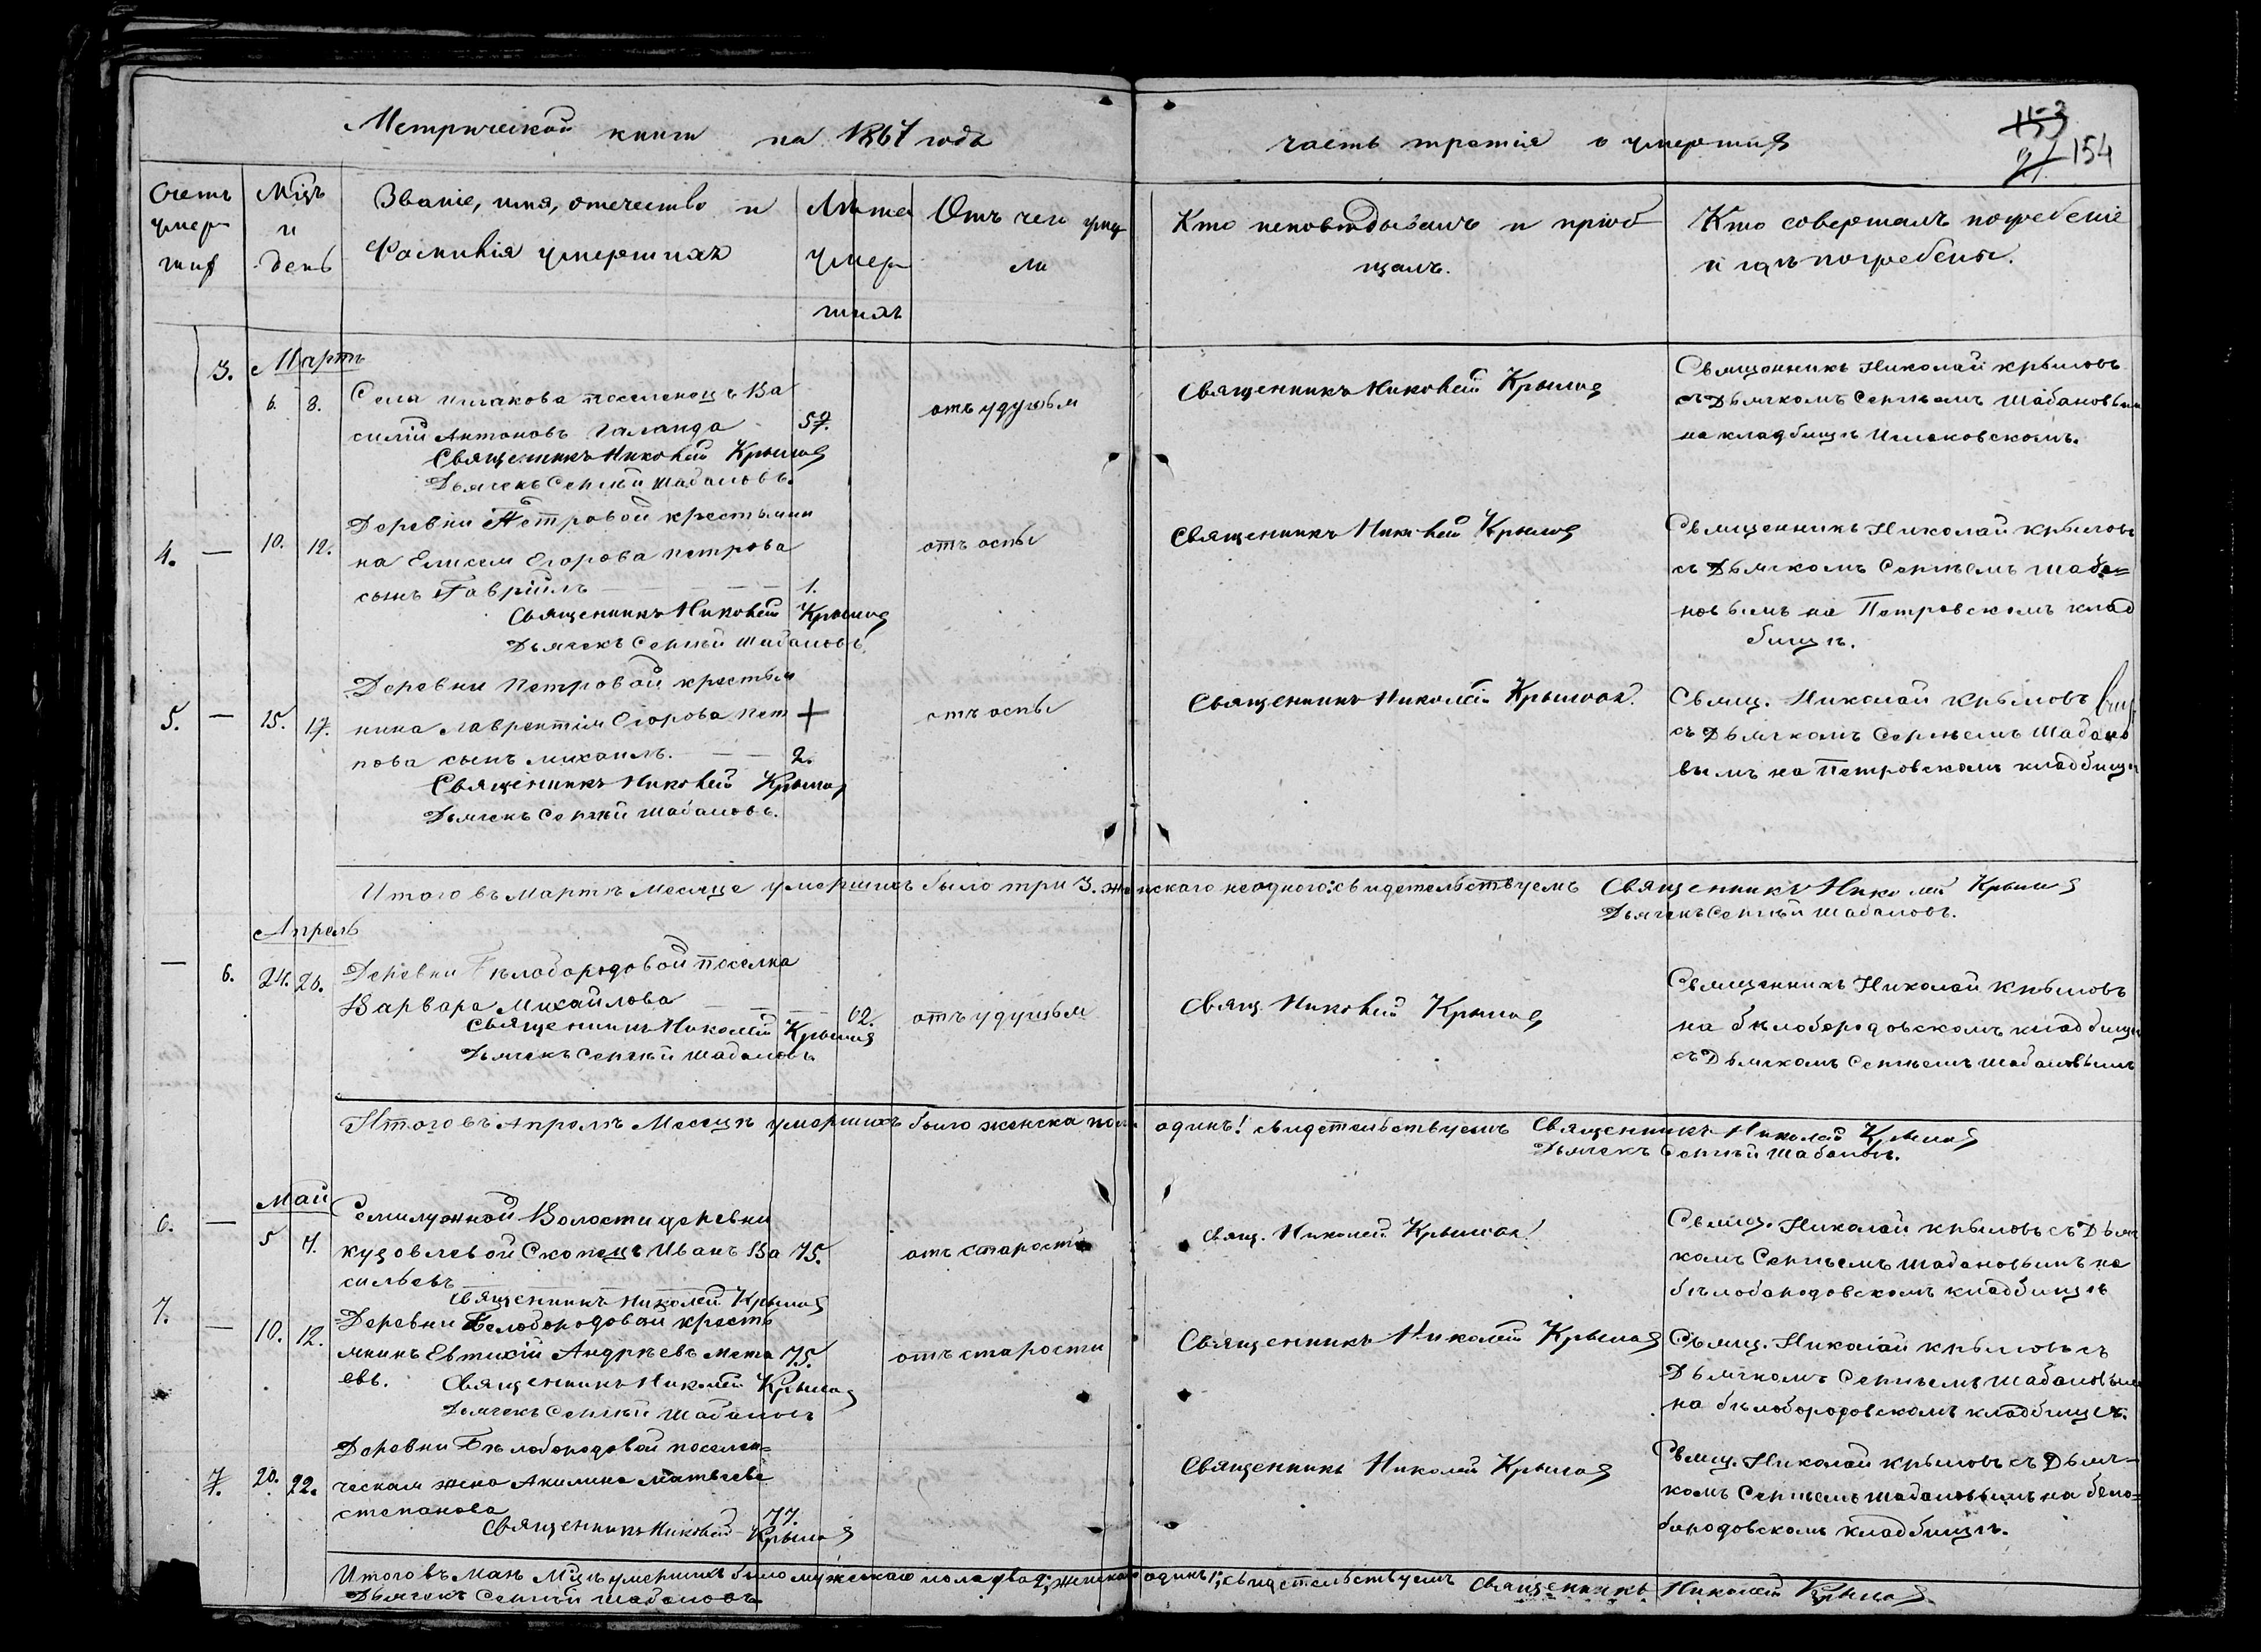 Метрической книги на 1867 годъ
часть третiя о умершихъ
153
154
Счетъ умер шихъ
Мцъ и день
Званiе, имя, отечество и
Фамилiя умершихъ
Лѣта умер шихъ
Отъ чего умер ли
Кто исповѣдывалъ и прiоб
щалъ.
Кто совершалъ погребенiе
и гдѣ погребены.
Мартъ
3. 6. 8.
Села поселенецъ Ва
силiй Антоновъ Галанда 57.
Священникъ Николай Крыловъ
Дьячекъ Сергѣй Шабановъ.
отъ удушья
Священникъ Николай Крыловъ
Священникъ Николай Крыловъ
съ Дьячкомъ Сергѣемъ Шабановымъ
на кладбищѣ
4. — 10. 12.
Деревни Петровой крестьяни
на Елисея Егорова Петрова
сынъ Гаврiилъ — — — 1.
Священникъ Николай Крыловъ
Дьячекъ Сергѣй Шабановъ.
отъ оспы
Священникъ Николай Крыловъ
Священникъ Николай Крыловъ
съ Дьячкомъ Сергѣемъ Шаба=
новымъ на Петровскомъ клад
бищѣ.
5. — 15. 17.
Деревни Петровой крестья
нина Лаврентiя Егорова Пет
рова сынъ Михаилъ. — — 2.
Священникъ Николай Крыловъ
Дьячекъ Сергѣй Шабановъ.
отъ оспы
Священникъ Николай Крыловъ.
Свящ. Николай Крыловъ
съ Дьячкомъ Сергѣемъ Шабано
вымъ на Петровскомъ кладбищѣ
Итого въ Мартѣ Месяце умершихъ было три 3. женскаго неодного: свидетельствуемъ Священникъ Николай Крыловъ
Дьячекъ Сергѣй Шабановъ.
Апрель
— 6. 24. 26.
Деревни Бѣлобородовой поселка
Варвара Михайлова — — 62.
Священникъ Николай Крыловъ
Дьячекъ Сергѣй Шабановъ
отъ удушья
Свящ Николай Крыловъ
Священникъ Николай Крыловъ
на бѣлобородовскомъ кладбищѣ
съ Дьячкомъ Сергѣемъ Шабановымъ
Итого въ Апрелѣ Месецѣ умершихъ было женска пола одинъ! свидетельствуемъ Священникъ Николай Крыловъ
Дьячекъ Сергѣй Шабановъ.
Май
6. — 5 7.
Семилужной Волости деревни
Кузовлевой Скопецъ Иванъ Ва 75.
сильевъ
Священникъ Николай Крыловъ
отъ старости
Свящ. Николай Крыловъ
Свящ. Николай Крыловъ съ Дьяч
комъ Сергѣемъ Шабановымъ на
бѣлобородовскомъ кладбищѣ
7. — 10. 12.
Деревни Белобородовой кресть
янинъ Евтихiй Андрѣевъ 75.
Священникъ Николай Крыловъ
Дьячекъ Сергѣй Шабановъ
отъ старости
Священникъ Николай Крыловъ
Свящ. Николай Крыловъ съ
Дьячкомъ Сергѣемъ Шабановымъ
на бѣлобородовскомъ кладбищѣ.
7. 20. 22.
Деревни Бѣлобородовой поселен=
ческая жена Акилина Матвѣева
Степанова 77.
Священникъ Николай Крыловъ
Священникъ Николай Крыловъ
Свящ. Николай Крыловъ съ Дьяч—
комъ Сергѣемъ Шабановымъ на бело=
бородовскомъ кладбищѣ.
Итого въ Маѣ Мцѣ умершихъ было мужескаго пола два 2; женскаго одинъ 1; свидетельствуемъ Священникъ Николай Крыловъ
Дьячекъ Сергѣй Шабановъ